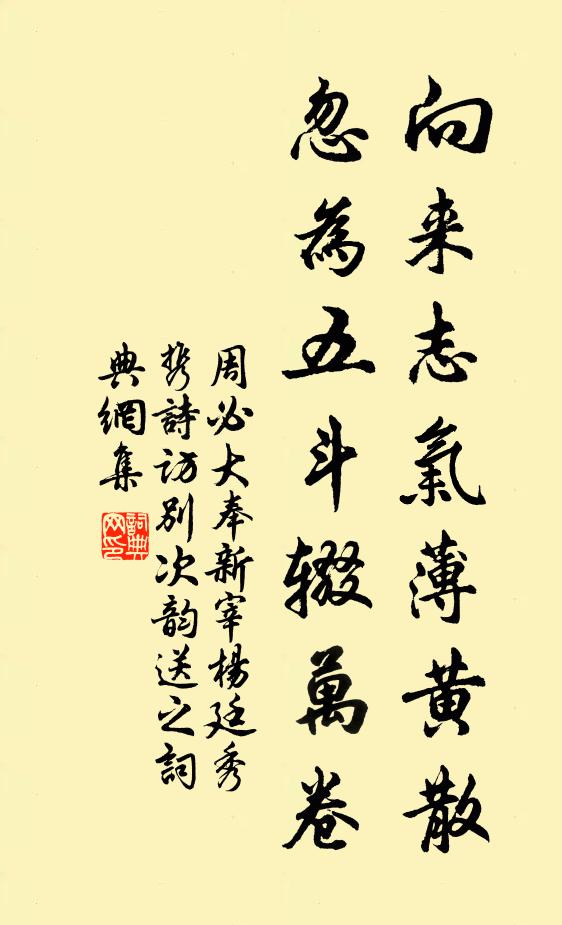 向来志氣薄黄散
忽為五斗辍萬卷
周必大奉新宰楊廷秀
携詩访别次韵送之詞
典網集
詞典网印